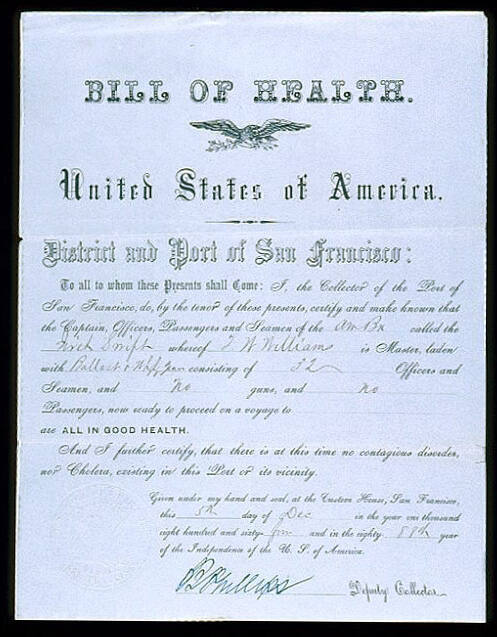 BILL OF HEALTH.
United States of America.
District and Port of San Francisco:
To all to whom these Presents shall Come: I, the Collector of the Port of
San Francisco, do, by the tenor of these presents, certify and make known that
the Captain, Officers, Passengers and Seamen of the Am Bk called the
Swift whereof W Williams is Master, laden
with Ballast & consisting of 32 Officers and
Seamen, and No guns, and no
Passengers, now ready to proceed on a voyage to
are ALL IN GOOD HEALTH.
And I further certify, that there is at this time no contagious disorder,
nor Cholera, existing in this Port or its vicinity.
Given under my hand and seal, at the Custom House, San Francisco,
this 5th day of Dec in the year one thousand
eight hundred and sixty four and in the eighty 88th year
of the Independence of the U. S. of America.
Phillips
Deputy Collector